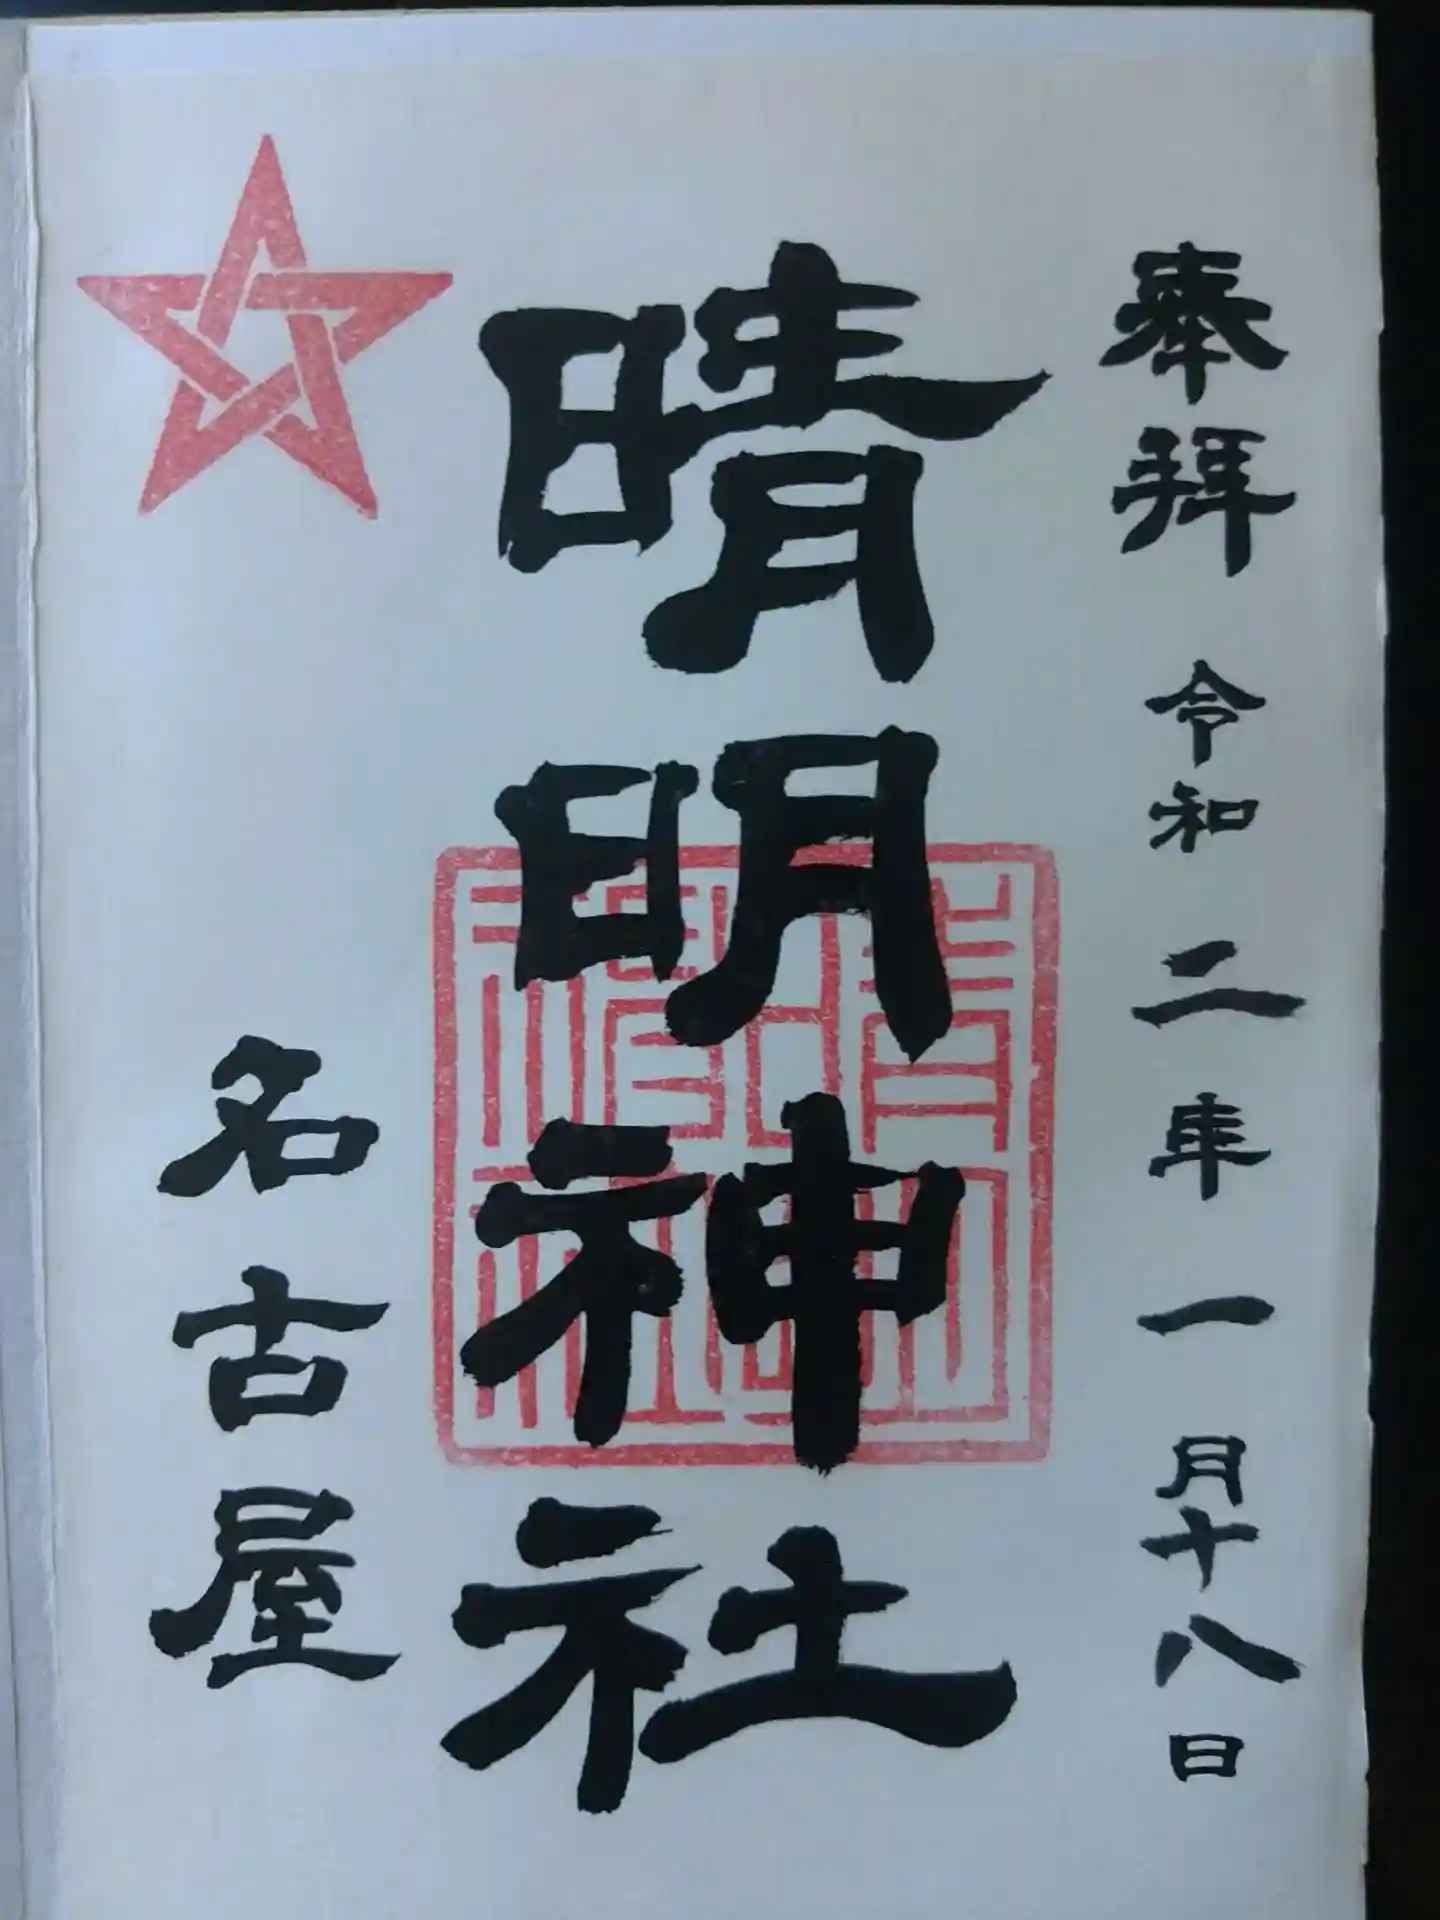 奉拝 令和二年一月十八日
晴明神社
名古屋